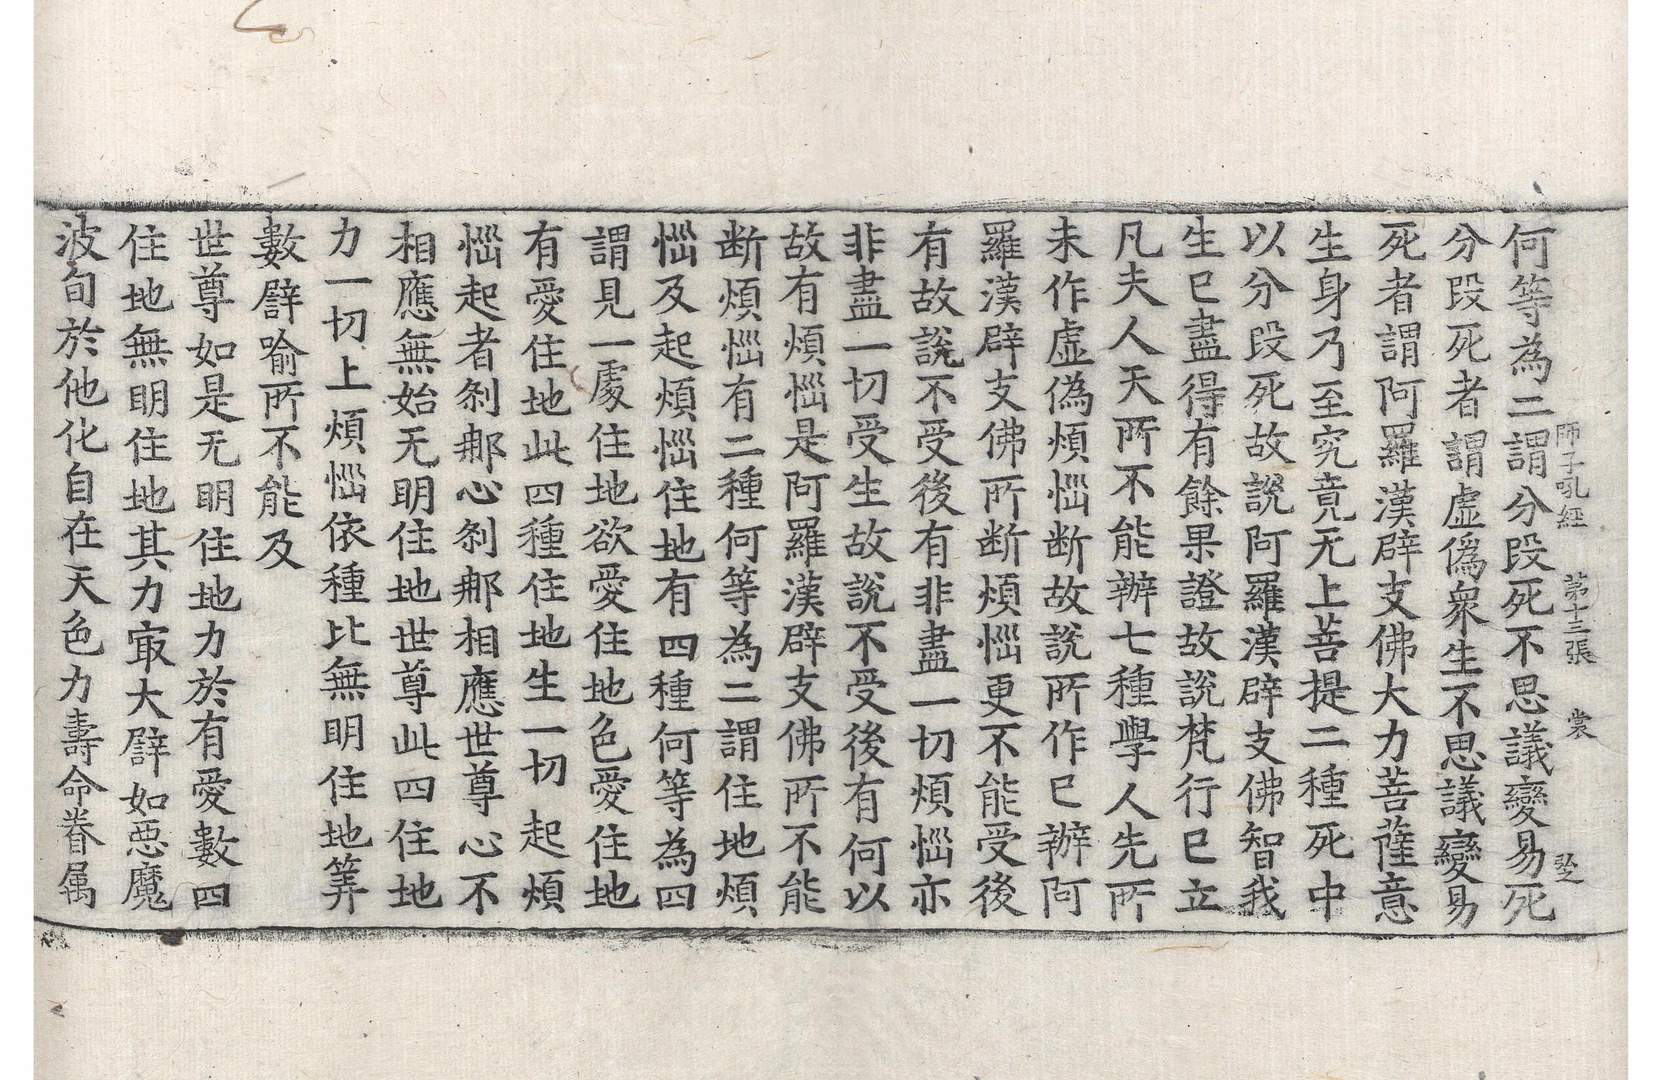 師子吼經 第十三張 裳
何等為二謂分段死不思議變易死
分段死者謂虛僞衆生不思議變易
死者謂阿羅漢辟支佛大力菩薩意
生身乃至究竟无上菩提二種死中
以分段死故說阿羅漢辟支佛智我
生已盡得有餘果證故說梵行已立
凡夫人天所不能辦七種學人先所
未作虛僞煩惱断故說所作已辦阿
羅漢辟支佛所断煩惱更不能受後
有故說不受後有非盡一切煩惱亦
非盡一切受生故說不受後有何以
故有煩惱是阿羅漢辟支佛所不能
断煩惱有二種何等為二謂住地煩
惱及起煩惱住地有四種何等為四
謂見一處住地欲愛住地色愛住地
有愛住地此四種住地生一切起煩
惱起者刹那心刹那相應世尊心不
相應無始无明住地世尊此四住地
力一切上煩惱依種比無明住地筭
數譬喻所不能及
世尊如是无明住地力於有愛數四
住地無明住地其力㝡大譬如惡魔
波旬於他化自在天色力壽命眷属